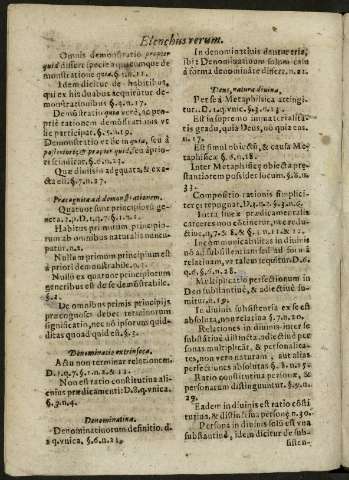 Elenchus rerum.
Omnis demonstratio propter
quid differt specie a quacumque de
monstratione quia. §.1.n.11.
Idem dicitur de habitibus,
qui ex his duabus sequuntur de-
monstrationibus §.4.n.17.
Demonstratio quia verè, ac pro-
priè rationem demonstrationis ve
participat. §.5.n.19.
Demonstratio vt
posteriori, & propter quid, seu à prio-
ri §.6.n.23.
Quæ diuisio adæquata, & exa-
cta sit. §.7.n.27.
Præcognita ad demonstrationem.
Quatuor sunt principiorũ ge-
nera.
Habitus primorum principio-
rum ab omnibus naturalis nuncu-
patur. n.2.
Nullum primum principium est
à priori demonstrabile. n.7.
Nullũ ex quatuor principiorum
generibus est de se demonstrabile.
§.2.
De omnibus primis principijs
præcognosci debet terminorum
significatio, nec nõ ipsorum quid-
ditas quoad quid est. §.3.
Denominatio extrinseca.
A Deo non terminat relationem.
D.1.q.7. §.1.n.2. & 12.
Non est ratio constitutiua ali-
cuius prædicamenti: D.8.q.vnica.
§.2.n.4.
Denominatiua.
Denominatiuorum definitio. d.
2 q.vnica, §.6.n.21.
In denominatiuis
ibi: Denominatiuum solum casu
à forma denominãte differt. n.22.
Deus, natura diuina.
Per se à Metaphisica attingi-
tur. D.1.q.vnic. §.3.n.13.
Est in supremo immaterialita-
tis gradu, quia Deus, nõ quia ens.
n.17.
Est simul obiectũ, & causa Me-
taphisicæ §.6.n.28.
Inter Metaphisicę obiecta præ-
stantiorem possidet locum. §.8.n.
32.
Compositio rationis simplici-
ter ei repugnat, D.1.n.2. §.3.n.6.
Intra suæ prædicamentalis
carceres non extinetur, nec redu-
ctiuè, q.7. §.8, & §.3.n.11. & 12.
Incommunicabilitas in diuinis
nõ ad substantiam sed ad formã
relatiuam, vt talem sequitur. D.6.
q.6. §.6.n.28.
Multiplicatio perfectionum in
Deo substantiuè, & adiectiuè su-
mitur. n.19.
In diuinis subsistentia ex se est
absoluta, non relatiua §.7.n.20.
Relationes in diuinis inter se
substantiuè distinctæ adiectiuè per
sonas multiplicãt, & personalita-
tes, non verò naturam, aut alias
perfectiones absolutas §.8.n.25.
Ratio constitutiua personæ, &
personarum distinguuntur. §.9.n.
29.
Eadem in diuinis est ratio cõsti
tutiua, & distinctiua personę n.30.
Persona in diuinis solo est vna
substantiuè, idem dicitur de sub-
sisten-